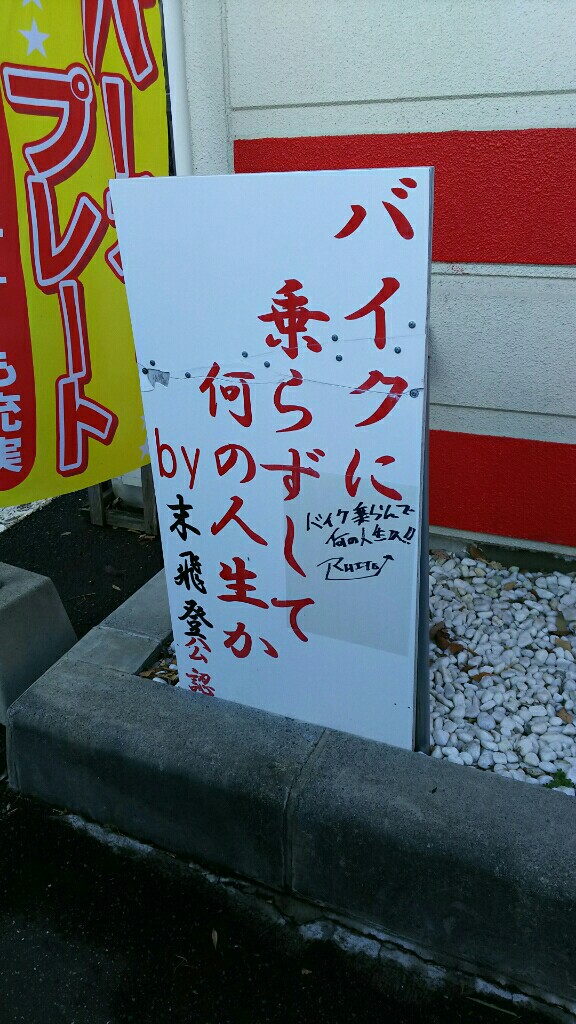 バイクに
乗らずして
何の人生か
by 末飛登
公認
バイク乗らんで
何の人生や!!
プレート
も充実